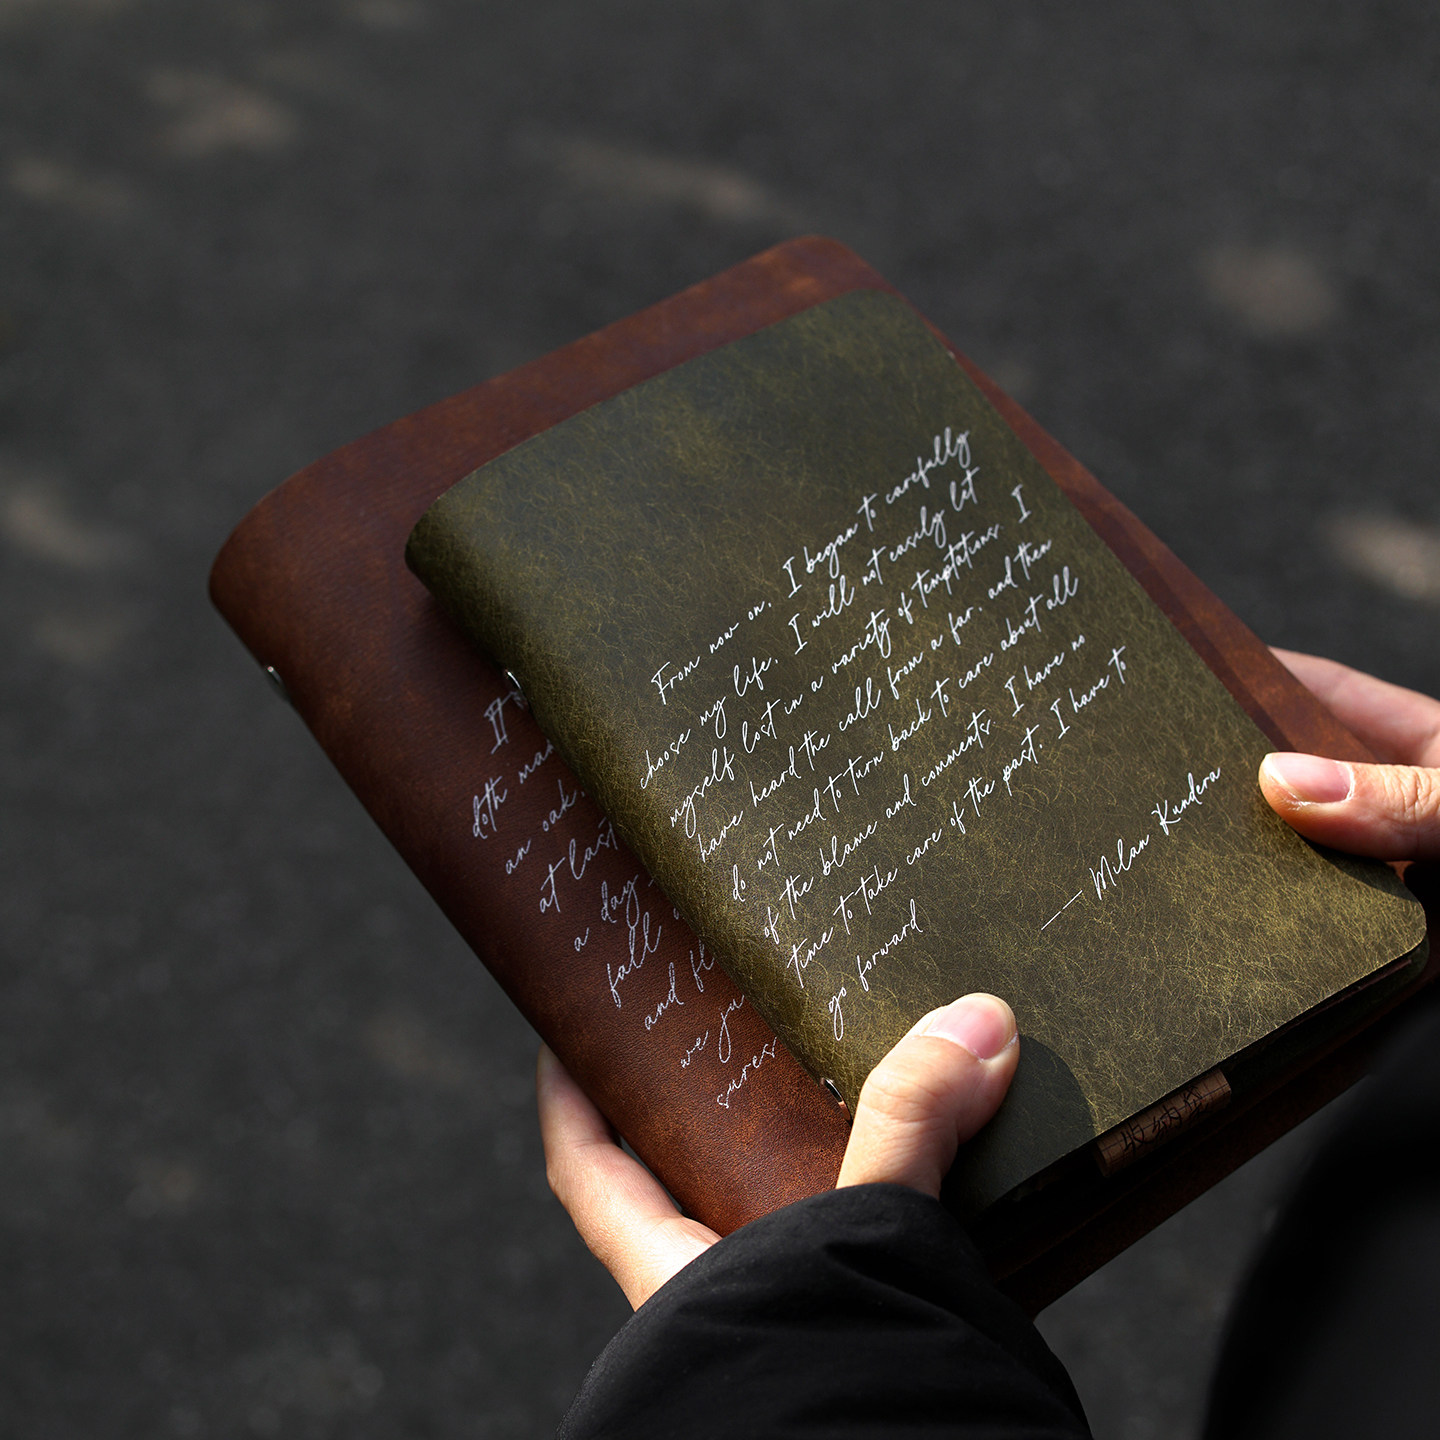 From now on, I began to carefully
choose my life, I will not easily let
myself lost in a variety of temptations. I
have heard the call from a far, and then
do not need to turn back to care about all
of the blame and comments. I have no
time to take care of the past, I have to
go forward
—— Milan Kundera
It
doth ma
an oak,
at last
a day
fall
and fl
we ju
sures